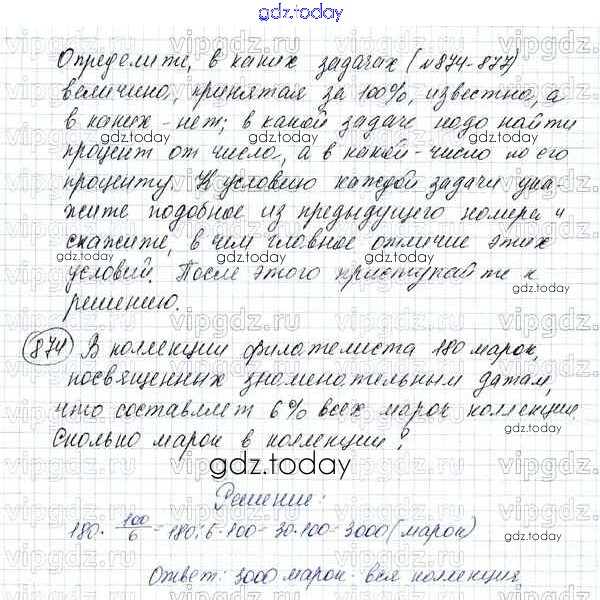 gdz.today
Определите, в каких задачах (№874-877)
величина, принятая за 100%, известна, а
в каких - нет; в какой задаче надо найти
процент от числа, а в какой - число по его
проценту. К условию каждой задачи ука-
жите подобное из предыдущего номера и
скажите, в чем главное отличие этих
условий. После этого приступайте к
решению.
874 В коллекции филателиста 180 марок,
посвященных знаменательным датам,
что составляет 6% всех марок коллекции.
Сколько марок в коллекции?
gdz.today
Решение:
180 · 100/6 = 180:6·100 = 30·100 = 3000 (марок)
Ответ: 3000 марок - вся коллекция